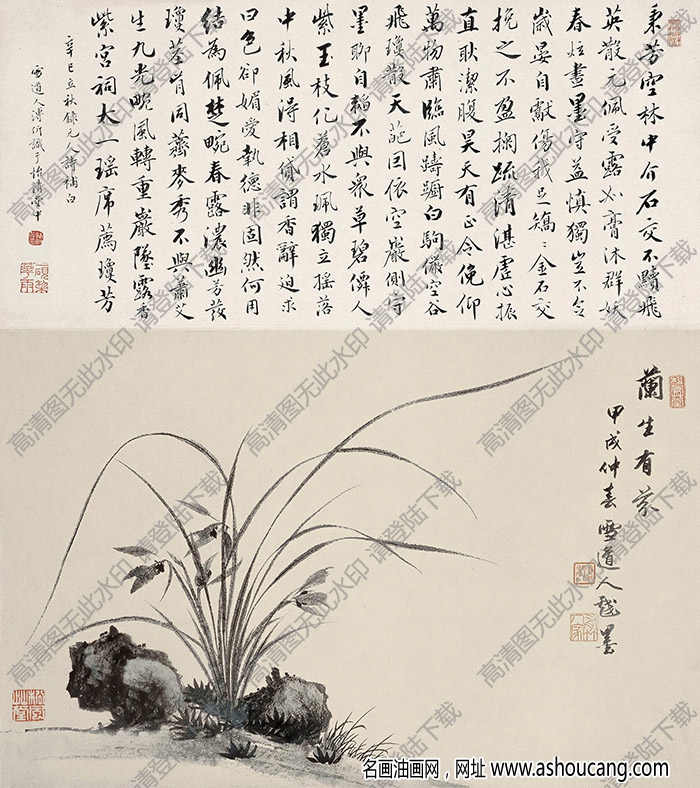 秉芳空林中介石交不贖飛
英散元佩受露如膏沐群妖
春炫晝墨守益慎獨豈不令
歲晏自獻傷我足鴆﹦金石交
挽之不盈掬疏清湛虛心振
直耿潔腹昊天有正令俛仰
萬物肅臨風躊躕白駒儼空谷
飛瓊散天葩因依空巖側守
墨聊自韜不與衆草碧僊人
紫玉枝化蒼水珮獨立摇落
中秋風淂相貸謂香辭迫求
曰色卻媚愛執德非固然何用
結為佩楚畹春露濃幽芳發
瓊蕤肯同薺麥秀不與蕭艾
生九光畹風轉重巖墜露香
紫宮祠太一瑶席薦瓊芳
辛巳立秋錄元人詩補白
雪道人溥伒識于怡清堂中
蘭生有芬
甲戌仲春雪道人戲墨
高清图无此水印 请登陆下载
名画油画网，网址 www.ashoucang.com